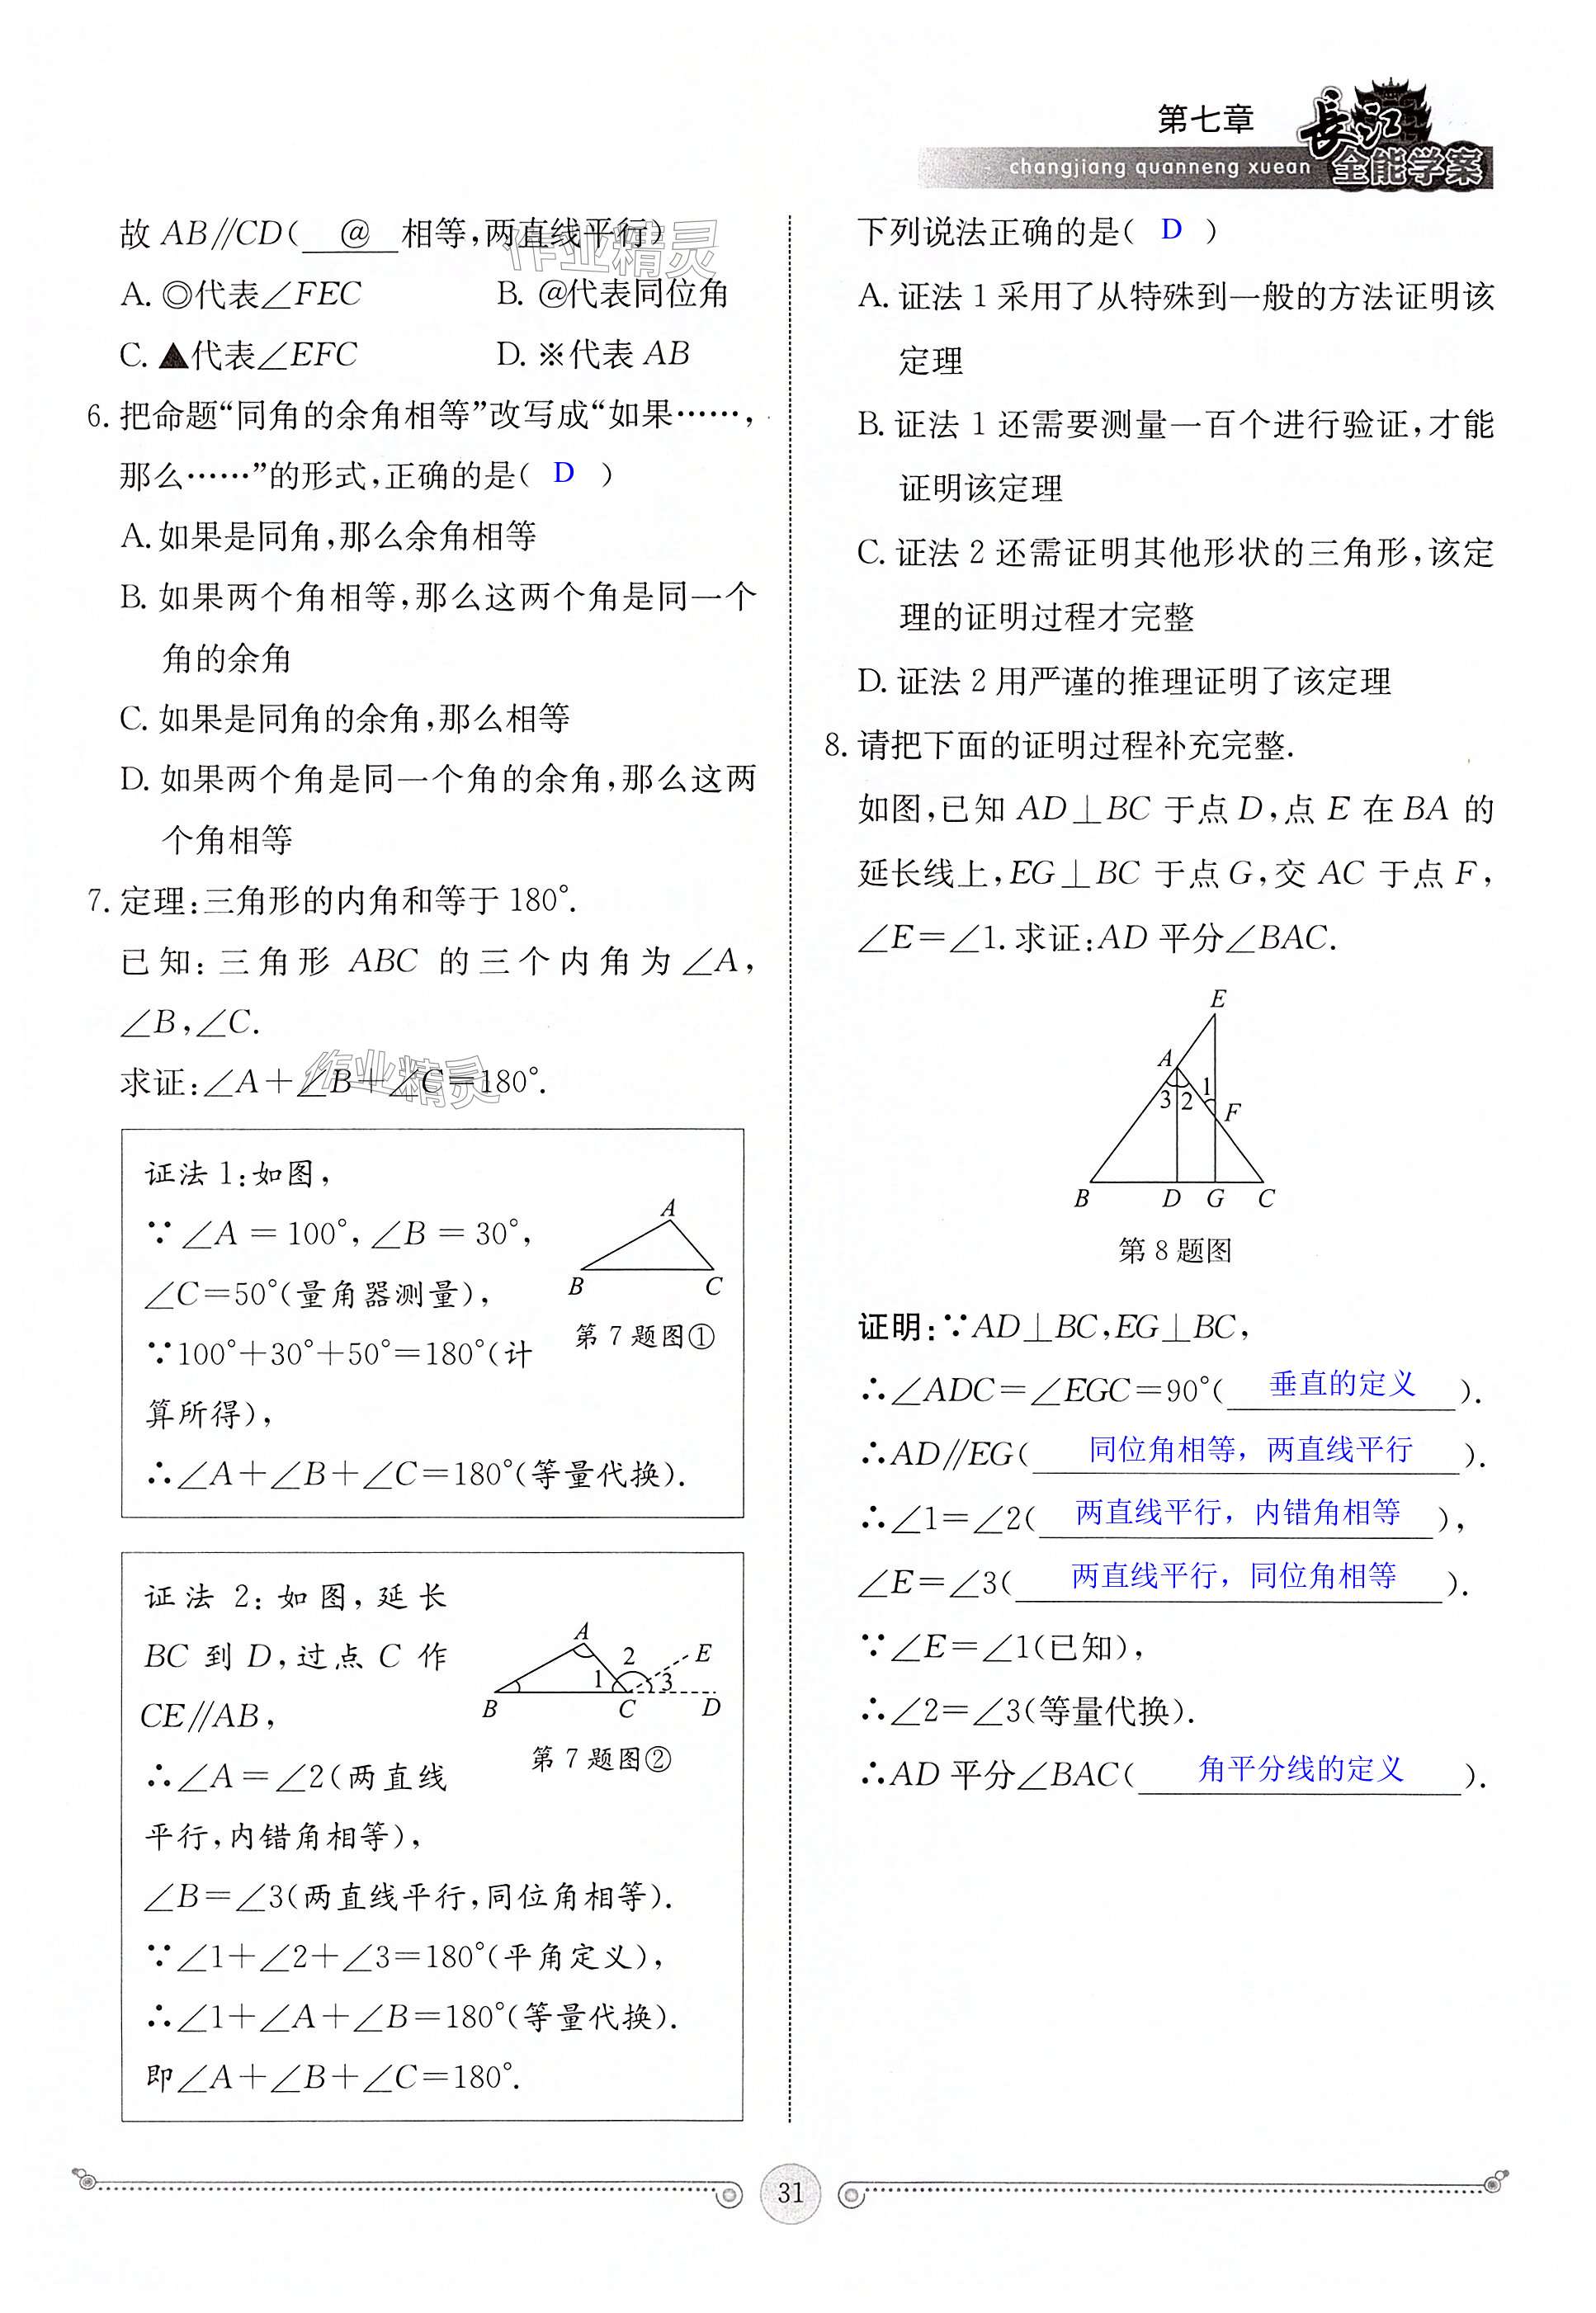 第七章
長江
全能学案
changjiang quanneng xuean
故AB∥CD(　@　相等,两直线平行)
A. ◎代表∠FEC　B. @代表同位角
C. ▲代表∠EFC　D. ※代表AB
6. 把命题“同角的余角相等”改写成“如果……,
那么……”的形式,正确的是( D )
A. 如果是同角,那么余角相等
B. 如果两个角相等,那么这两个角是同一个
角的余角
C. 如果是同角的余角,那么相等
D. 如果两个角是同一个角的余角,那么这两
个角相等
7. 定理:三角形的内角和等于180°.
已知:三角形ABC的三个内角为∠A,
∠B,∠C.
求证:∠A+∠B+∠C=180°.
证法1:如图,
∵∠A=100°,∠B=30°,
∠C=50°(量角器测量),
∵100°+30°+50°=180°(计
算所得),
∴∠A+∠B+∠C=180°(等量代换).
A
B C
第7题图①
证法2:如图,延长
BC到D,过点C作
CE∥AB,
∴∠A=∠2(两直线
平行,内错角相等),
∠B=∠3(两直线平行,同位角相等).
∵∠1+∠2+∠3=180°(平角定义),
∴∠1+∠A+∠B=180°(等量代换).
即∠A+∠B+∠C=180°.
A 2 E
1 3
B C D
第7题图②
下列说法正确的是( D )
A. 证法1采用了从特殊到一般的方法证明该
定理
B. 证法1还需要测量一百个进行验证,才能
证明该定理
C. 证法2还需证明其他形状的三角形,该定
理的证明过程才完整
D. 证法2用严谨的推理证明了该定理
8. 请把下面的证明过程补充完整.
如图,已知AD⊥BC于点D,点E在BA的
延长线上,EG⊥BC于点G,交AC于点F,
∠E=∠1.求证:AD平分∠BAC.
E
A
3 2 1
F
B D G C
第8题图
证明:∵AD⊥BC,EG⊥BC,
∴∠ADC=∠EGC=90°( 垂直的定义 ).
∴AD∥EG( 同位角相等，两直线平行 ).
∴∠1=∠2( 两直线平行，内错角相等 ),
∠E=∠3( 两直线平行，同位角相等 ).
∵∠E=∠1(已知),
∴∠2=∠3(等量代换).
∴AD平分∠BAC( 角平分线的定义 ).
31
作业精灵
作业精灵